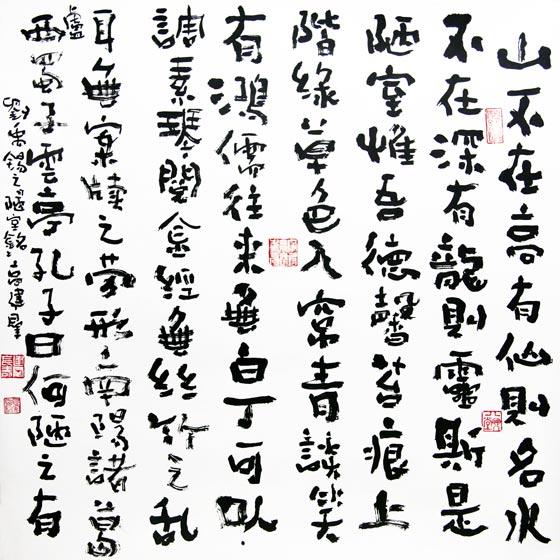 山不在高有仙則名水
不在深有龍則靈斯是
陋室惟吾德馨苔痕上
階綠草色入帘青談笑
有鴻儒往來無白丁可以
調素琴閱金經無絲竹之乱
耳無案牘之勞形南陽諸葛
盧
西蜀子雲亭孔子曰何陋之有
劉禹錫之陋室銘 高建星